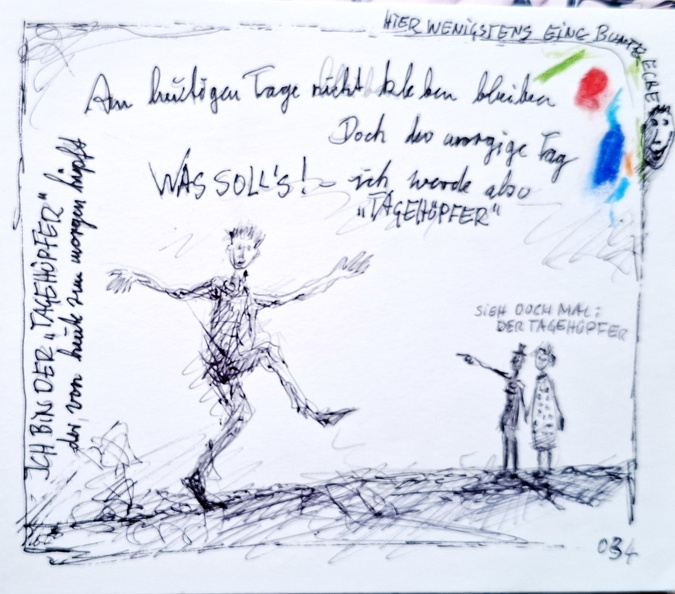 HIER WENIGSTENS EINE BUNTE ECKE
Am heutigen Tage nicht kleben bleiben
Doch der morgige Tag
WAS SOLL'S! – ich werde also
„TAGEHÜPFER"
ICH BIN DER „TAGEHÜPFER"
der von heute zum morgen hüpft
SIEH DOCH MAL:
DER TAGEHÜPFER
034